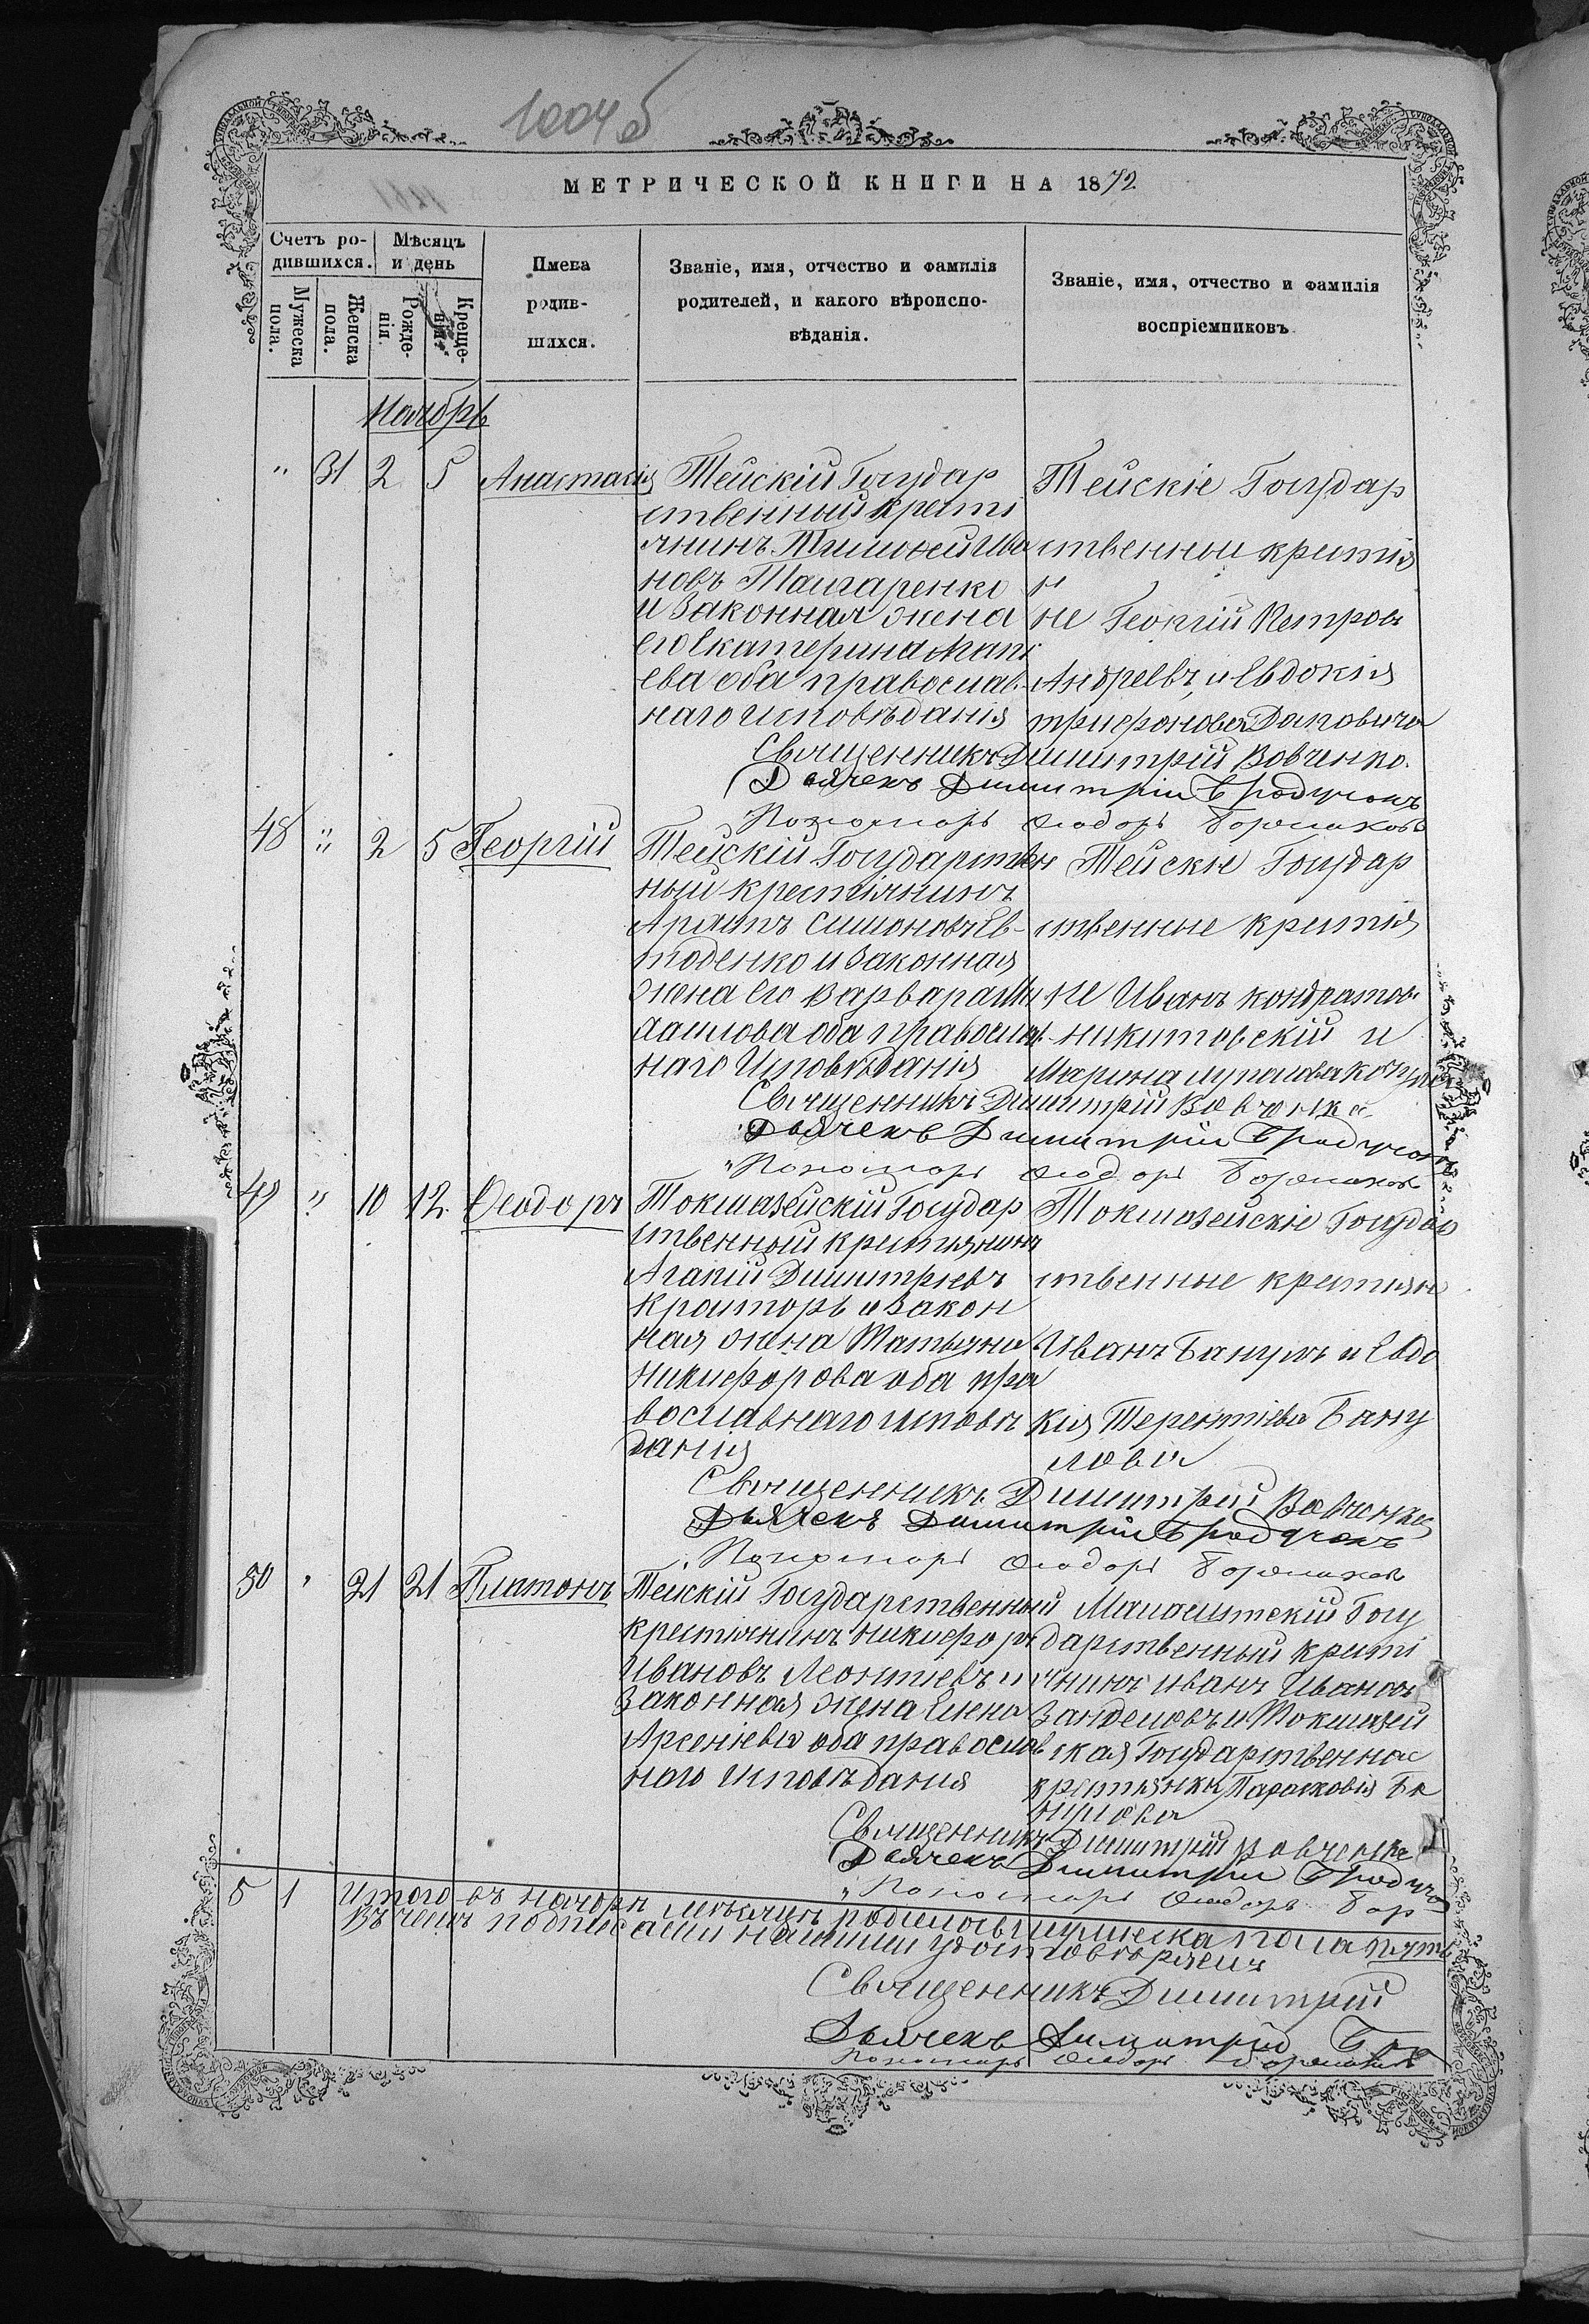 1004 б
МЕТРИЧЕСКОЙ КНИГИ НА 1872
Счетъ ро-
дившихся.
Мужеска
пола.
Женска
пола.
Мѣсяцъ
и день
Рожде-
нія.
Креще-
нія.
Имена
родив-
шихся.
Званіе, имя, отчество и фамилія
родителей, и какого вѣроиспо-
вѣданія.
Званіе, имя, отчество и фамилія
воспріемниковъ.
Ноябрь
" 31 2 5 Анастасія
Тейскій Государ
ственный кресті
янинъ Тимофей Ива
новъ
и Законная жена
его Екатерина
ева оба православ-
наго исповѣданія
Тейскіе Государ
ственныи крестія
не Георгій Петровъ
Андреевъ и Евдокія
Священникъ Димитрій Вовченко.
Дьячекъ Димитрій
Пономарь Ѳеодоръ
48 " 2 5 Георгій
Тейскій Государствен
ный крестіянинъ
Симоновъ Ев-
тоденко и Законная
жена его Варвара
оба православ-
наго Исповѣданія
Тейскіе Государ
ственные крестія
не Иванъ Кондратов.
Никитовскій и
Марина
Священникъ Димитрій Вовченко
Дьячекъ Димитрій
Пономарь Ѳеодоръ
49 " 10 12 Ѳеодоръ
Токмазейскій Государ
ственный крестиянинъ
Агакій Димитріевъ
и Закон
ная жена Татьяна
Никифорова оба пра
вославнаго исповѣ
данія
Токмазейскіе Государ
ственные крестиян
Иванъ Банулъ и Евдо
кія Терентіева Бану
лова
Священникъ Димитрій Вовченко
Дьячекъ Димитрій
Пономарь Ѳеодоръ
50 " 21 21 Платонъ
Тейскій Государственный
крестіянинъ Никифоръ
Ивановъ Леонтіевъ и
Законная жена Елена
Арсеніева оба православ
наго Исповѣданія
Государственный крестi
янинъ Иванъ Ивановъ
и Токмазей
ская Государственная
крестьянка Парасковія Ба
нулова
Священникъ Димитрій Вовченко
Дьячекъ Димитрій
Пономарь Ѳеодоръ
5 1 Итого въ ноябрѣ мѣсяцѣ родилось мужеска пола пять
Въ чемъ подписами нашими удостовѣряемъ
Священникъ Димитрій
Дьячекъ Димитрій
Пономарь Ѳеодоръ